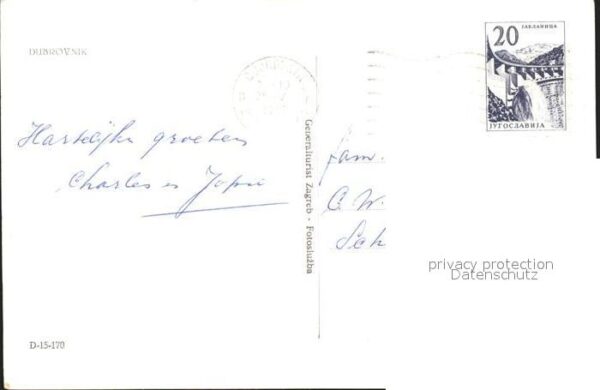 DUBROVNIK
Hartelijke groeten
Charles en Jopie
D-15-170
Generalturist Zagreb - Fotoslužba
20
ЈАБЛАНИЦА
ЈУГОСЛАВИЈА
fam.
C. W.
Sch
privacy protection
Datenschutz